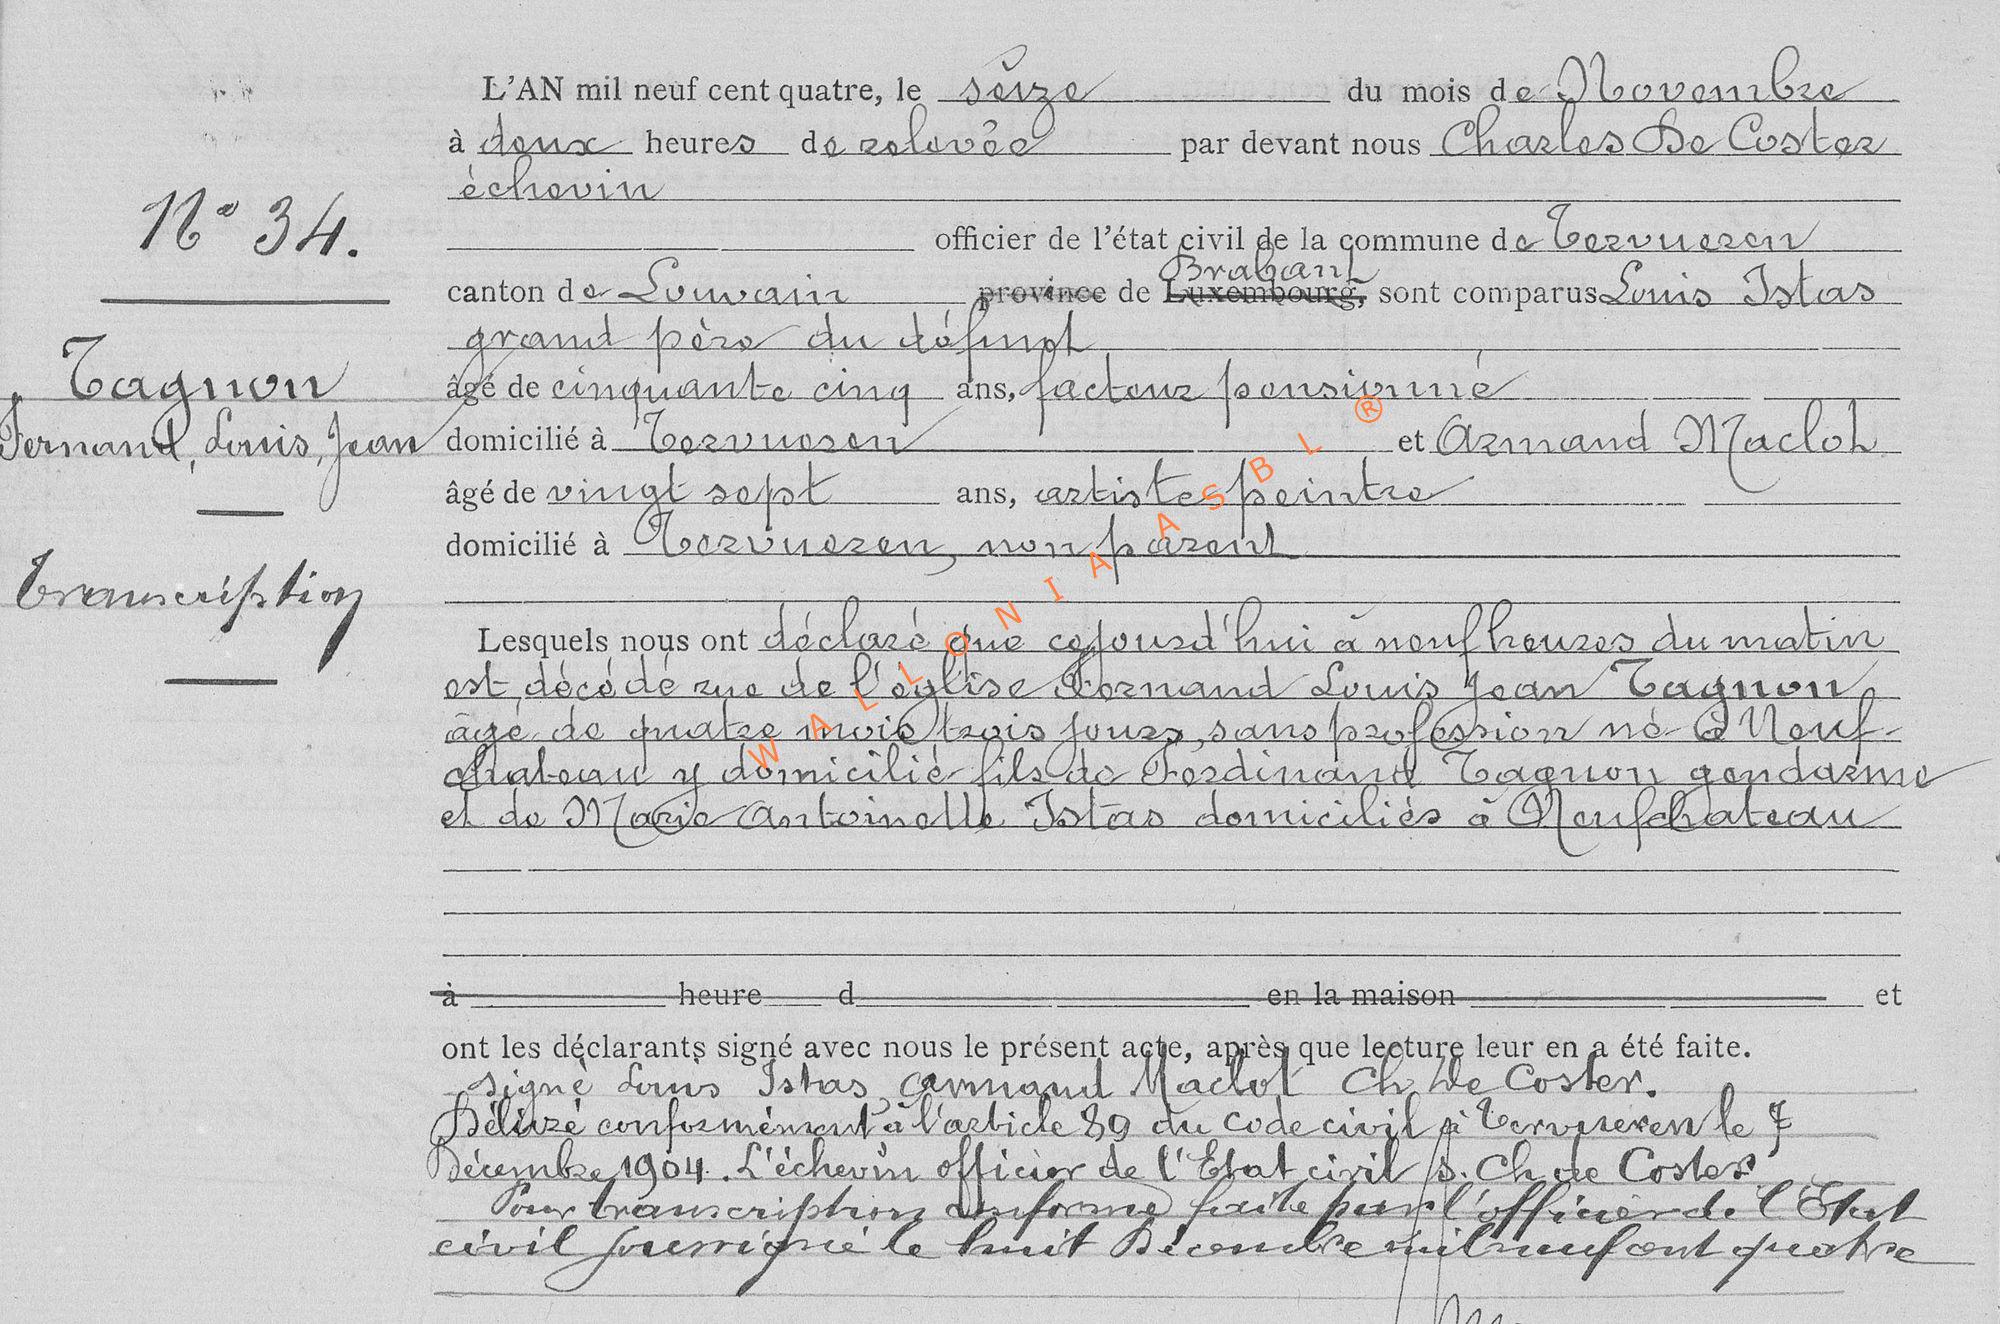 L'AN mil neuf cent quatre, le seize du mois de Novembre
à deux heures de relevée par devant nous Charles De Coster
échevin
N° 34.
officier de l'état civil de la commune de Tervueren
canton de Louvain province de Luxembourg, Brabant sont comparus Louis Istas
grand père du défunt
Tagnon
âgé de cinquante cinq ans, facteur pensionné
Fernand, Louis, Jean
domicilié à Tervueren et Armand Maclot
âgé de vingt sept ans, artiste peintre
domicilié à Tervueren, non parent
Transcription
Lesquels nous ont déclaré que cejourd'hui à neuf heures du matin
est décédé rue de l'église Fernand Louis Jean Tagnon
âgé de quatre mois trois jours, sans profession né à Neuf-
chateau y domicilié fils de Ferdinand Tagnon gendarme
et de Marie Antoinette Istas domiciliés à Neufchateau
à heure d en la maison et
ont les déclarants signé avec nous le présent acte, après que lecture leur en a été faite.
signé Louis Istas, Armand Maclot Ch De Coster.
Délivré conformément à l'article 89 du code civil à Tervueren le 7
Décembre 1904. L'échevin officier de l'Etat civil s. Ch de Coster
Pour transcription conforme faite par l'officier de l'Etat
civil soussigné le huit Décembre mil neuf cent quatre
WALLONIA ASBL ®